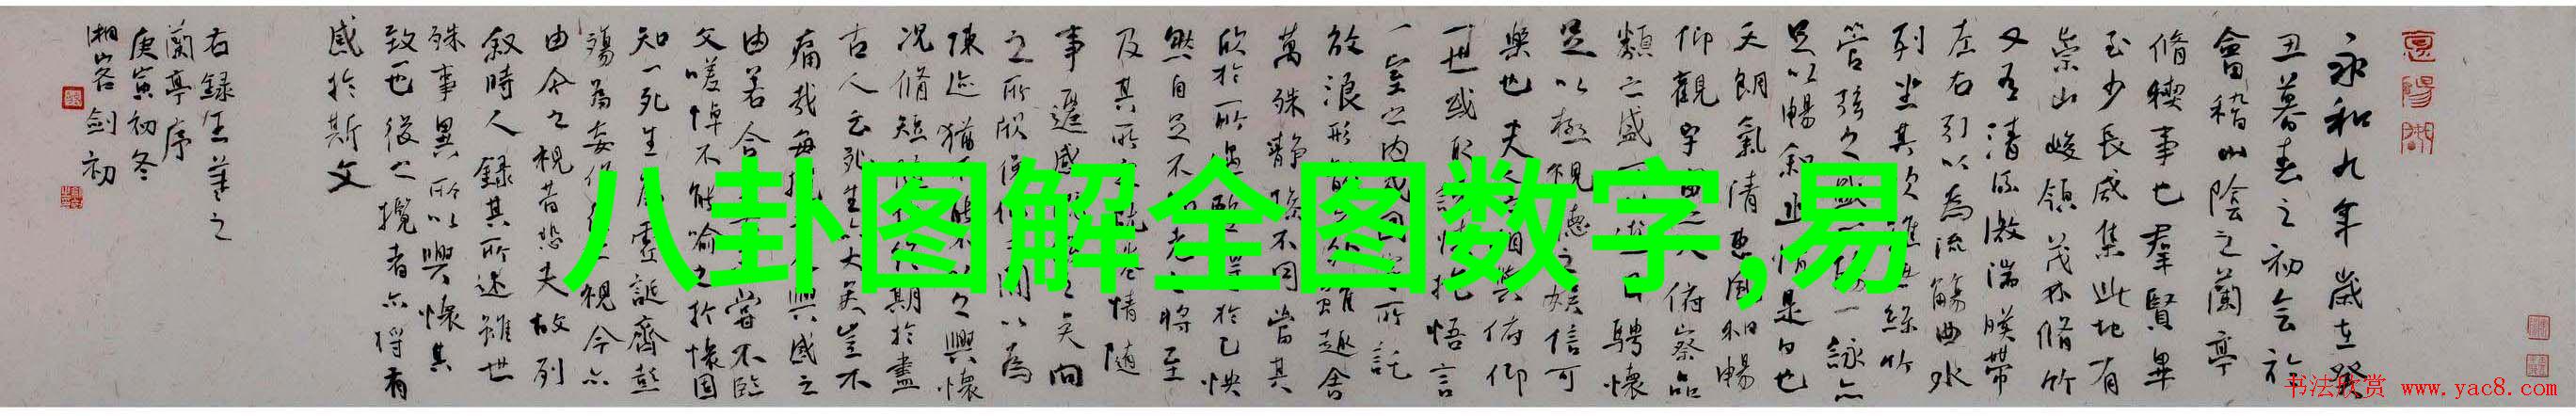 八卦图解全图数字,易
永和九年歲在癸
丑暮春之初会於
會稽山陰之蘭亭
脩稧事也羣賢畢
至少長咸集此地有
崇山峻領茂林脩竹
又有清流激湍暎帶
左右引以為流觴曲水
列坐其次雖無絲竹
管弦之盛一詠亦
足以暢叙幽情是日也
天朗氣清惠風和暢
仰觀宇宙之大俯察品
類之盛所以遊目騁懷
足以極視聽之娛信可
樂也夫人之相與俯仰
一世或取諸懷抱悟言
一室之内或因寄所託
放浪形骸之外雖趣舍
萬殊靜躁不同當其
欣於所遇暫得於己快
然自足不知老之將至
及其所之既惓情随
事遷感慨係之矣向
之所欣俛仰之間以為
陳迹猶不能不以之興懷
況脩短隨化終期於盡
古人云死生亦大矣豈不
痛哉每攬昔人興感之
由若合一契未嘗不臨
文嗟悼不能喻之於懷固
知一死生為虛誕齊彭
殤為妄作後之視今亦
由今之視昔悲夫故列
叙時人録其所述雖世
殊事異所以興懷其
致一也後之攬者亦将有
感於斯文
右録王羲之
蘭亭序
庚寅初冬
剑初
书法欣赏 www.yac8.com